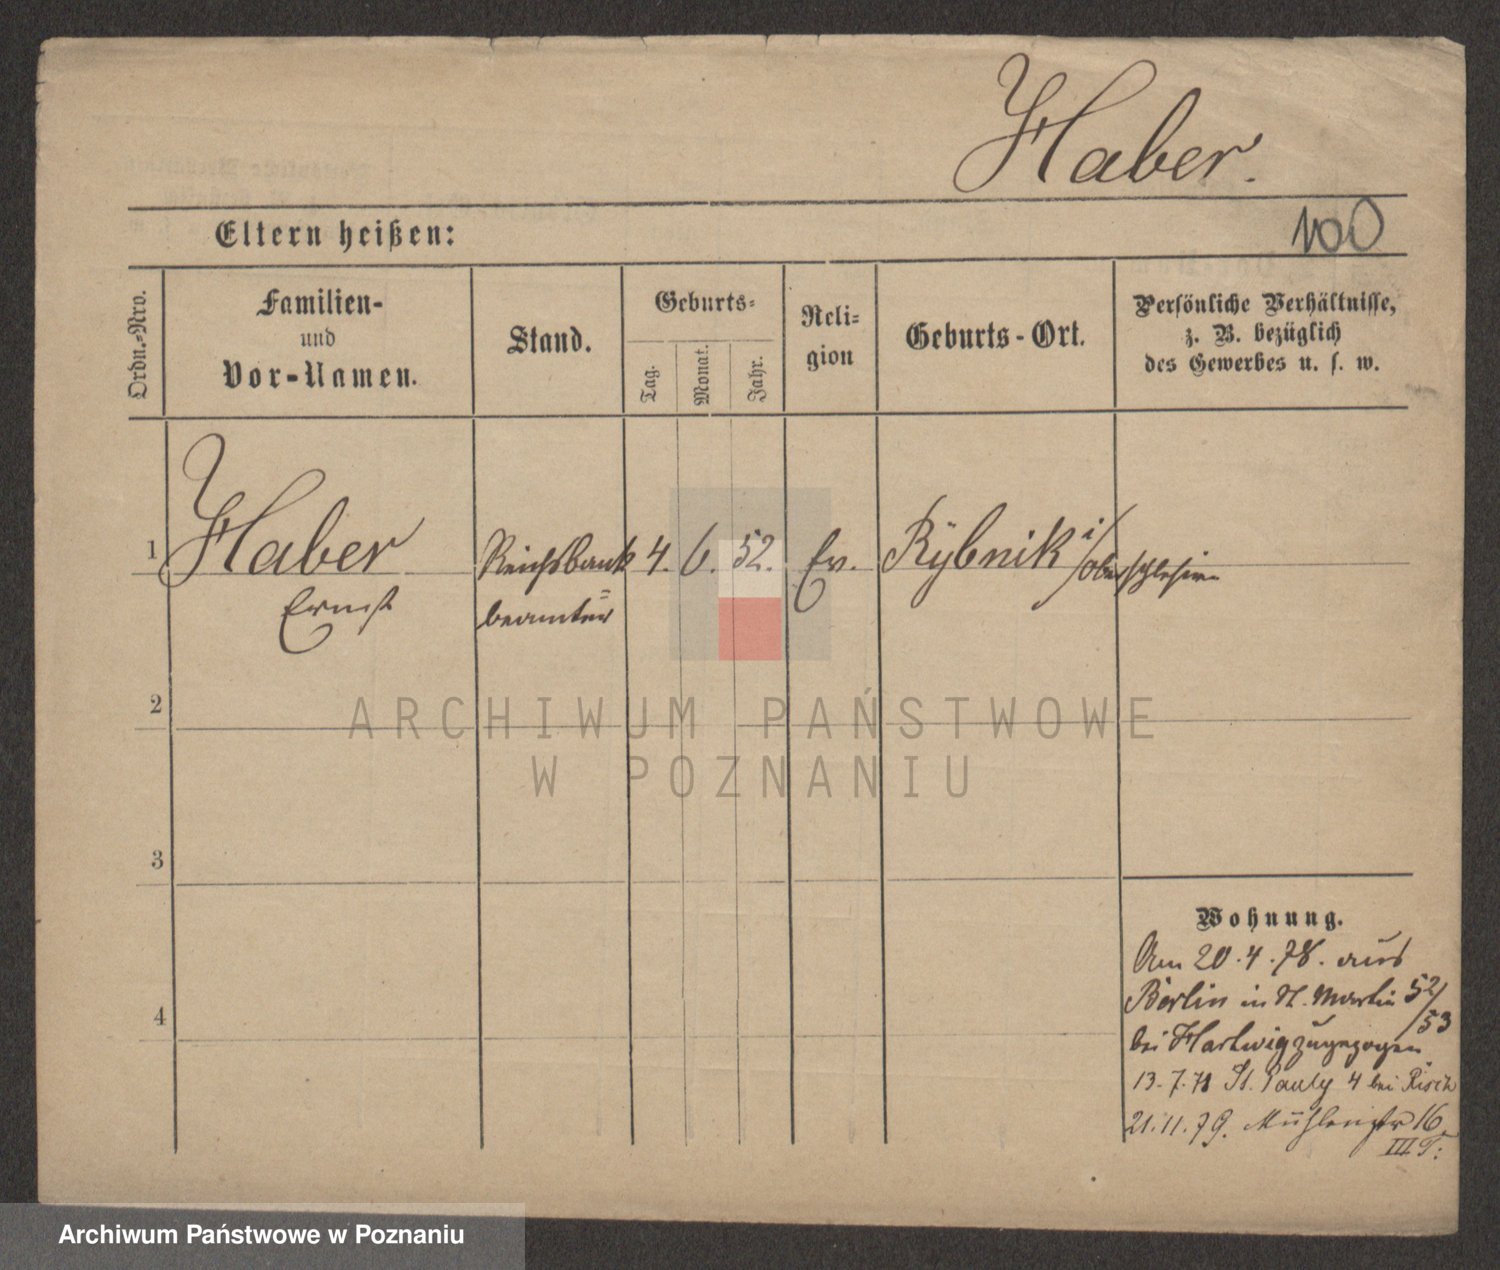 Haber.
Eltern heißen:
100
Ordn.-Nro.
Familien-
und
Vor-Namen.
Stand.
Geburts-
Tag.
Monat.
Jahr.
Reli-
gion
Geburts-Ort.
Persönliche Verhältnisse,
z. B. bezüglich
des Gewerbes u. s. w.
1 Haber Reichsbank 4. 6. 52. Ev. Rybnik i/Oberschlesien
Ernst beamter
2
ARCHIWUM PAŃSTWOWE
W POZNANIU
3
Wohnung.
Am 20.4.78. aus
Berlin in St. Martin 52/53
4
bei Hartwig zugezogen
13.7.78 St. Pauly 4 bei Risch
21.11.79. Mühlenstr 16
III T.
Archiwum Państwowe w Poznaniu